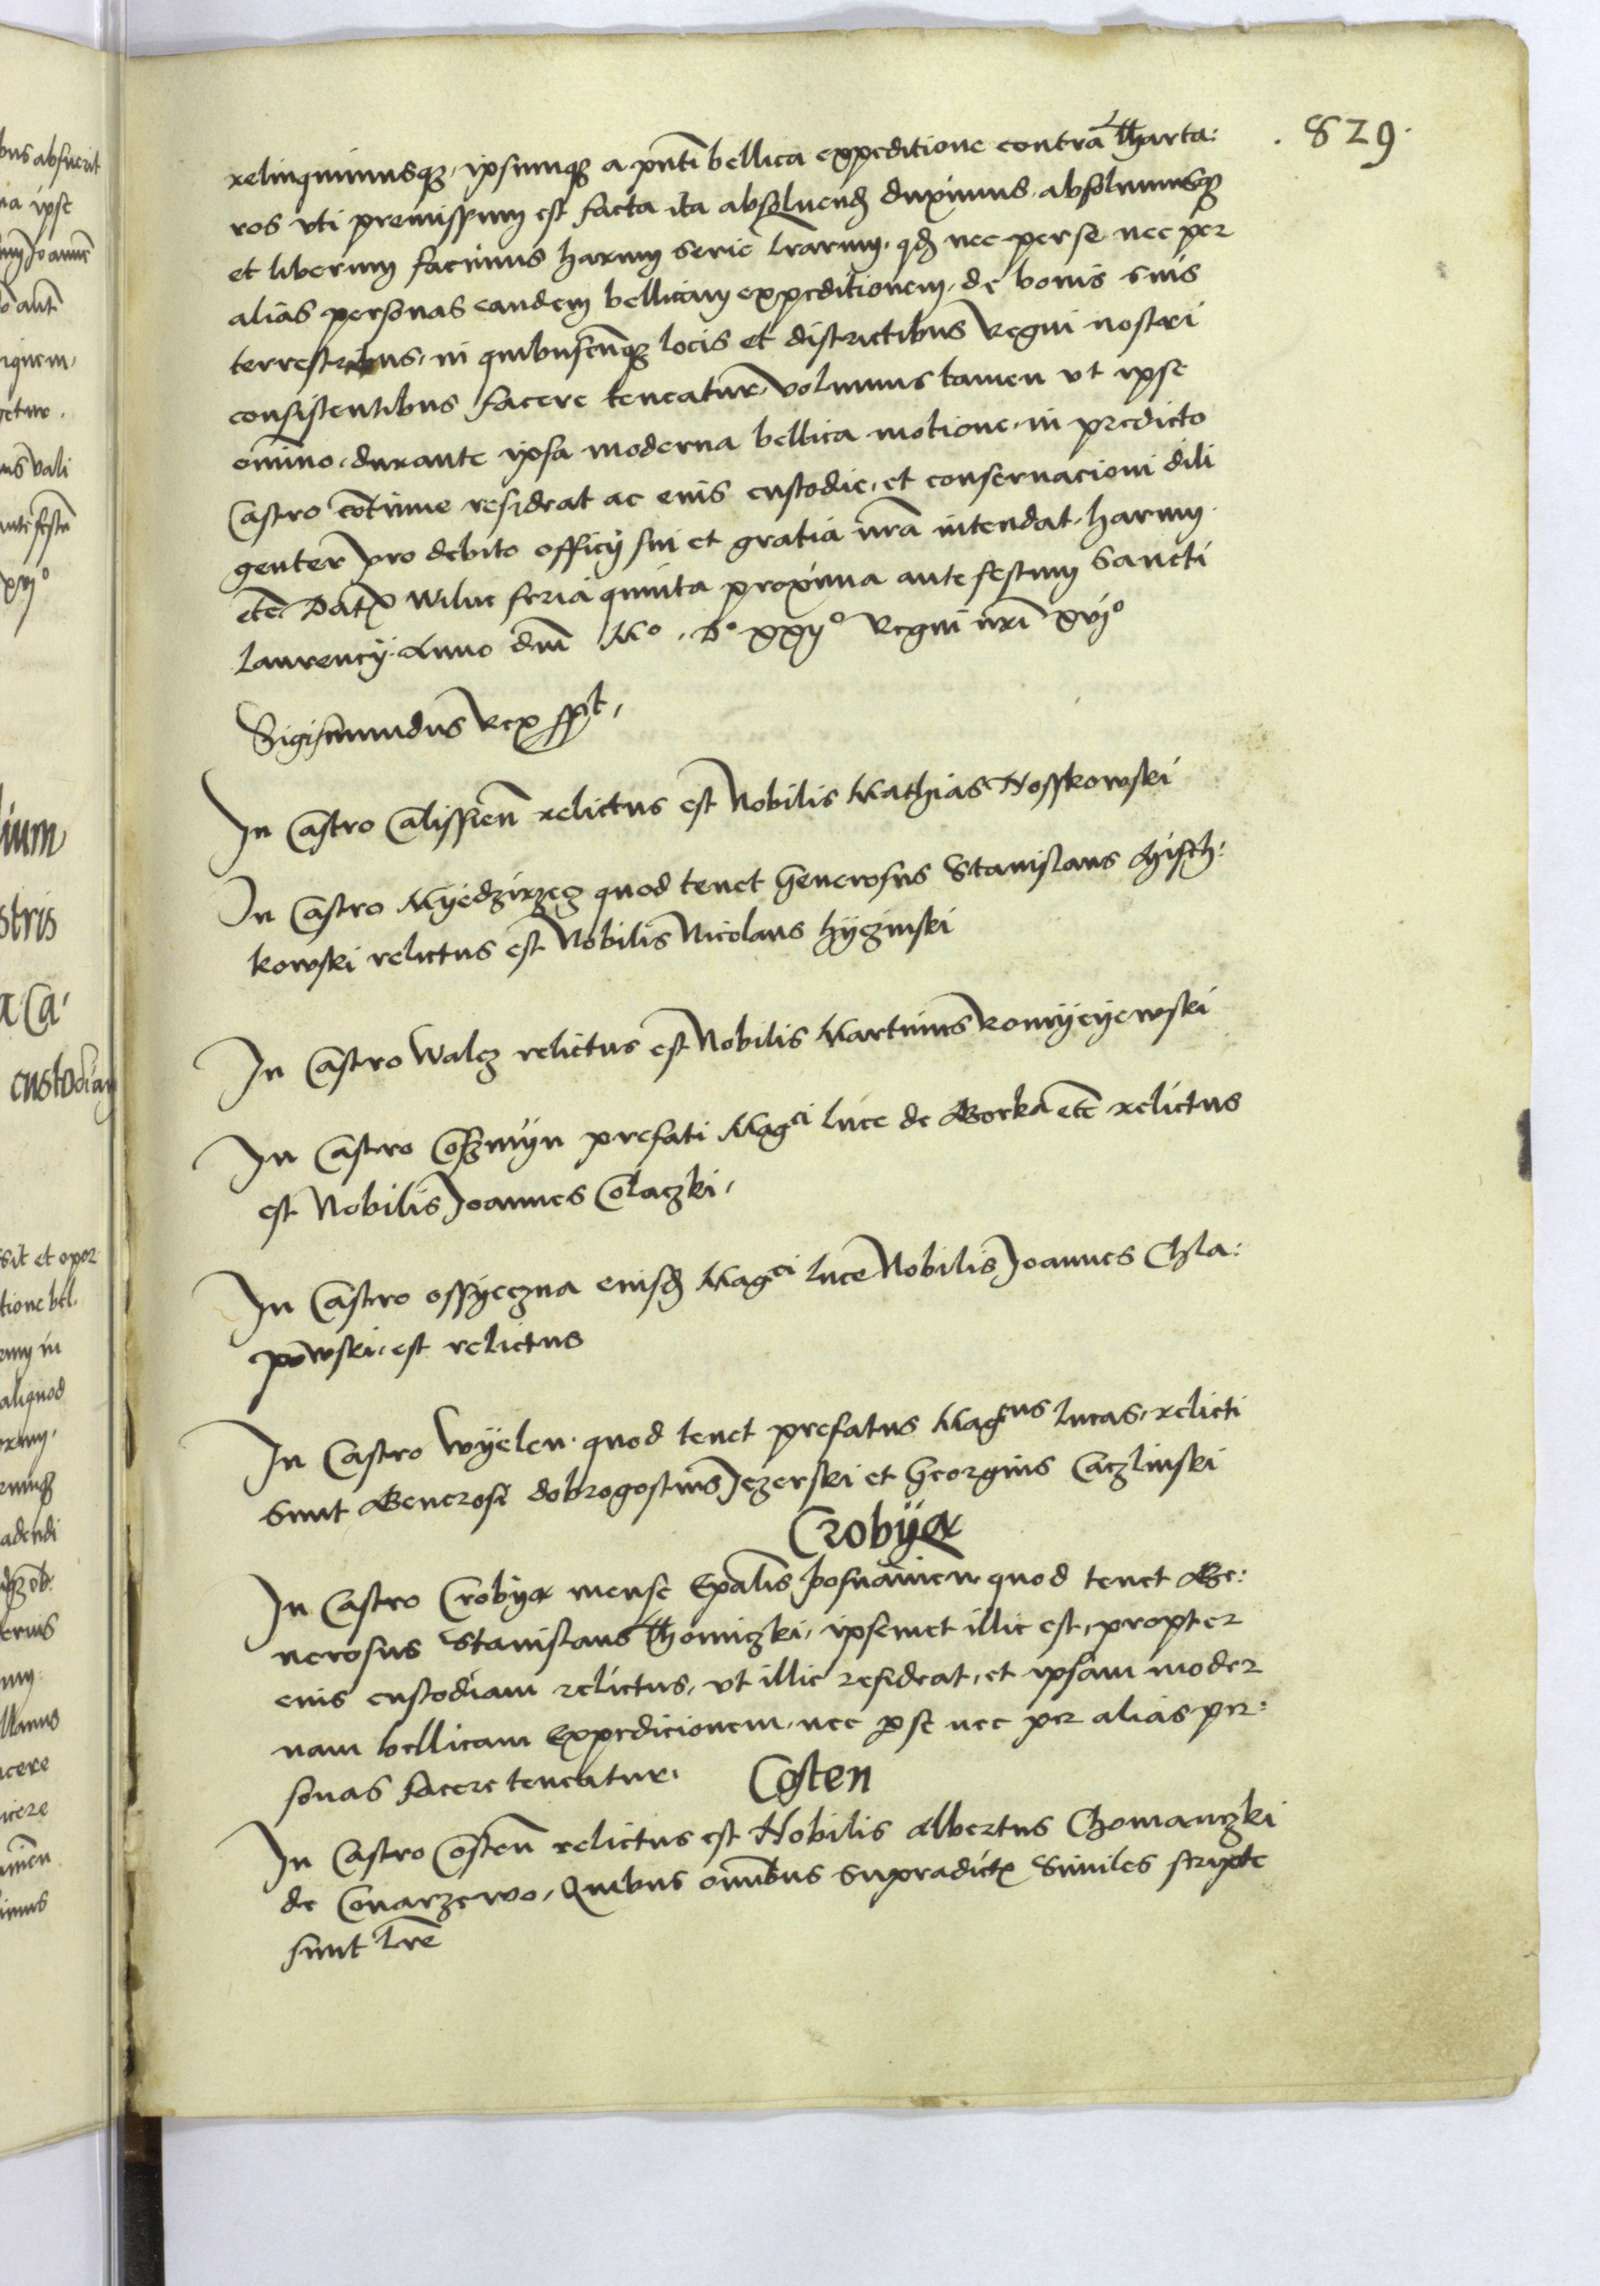 . 829 .
relinquimusqz, ipsumqz a pnti bellica expeditione contra Tharta:
ros vti premissum est facta ita absoluend duximus absoluimusqz
et liberum facimus harum serie lrarum, qd nec per se nec per
alias personas eandem bellicam expeditionem, de bonis suis
terrestribus, in quibuscunqz locis et districtibus Regni nostri
consistentibus facere teneatur, volumus tamen vt ipse
omino, durante ipsa moderna bellica motione, in predicto
Castro cotinue resideat ac eius custodie, et conseruacioni dili
genter pro debito officij sui et gratia nra intendat, harum
etc Dat Wilne feria quinta proxima ante festum Sancti
Laurencij. Anno dni Mo. Do xxijo Regni nri xvjo
Sigismundus Rex sspt,
In Castro Calissien relictus est Nobilis Mathias Nosskowski
In Castro Myedzirzecz quod tenet Generosus Stanislaus Mischkowski relictus est Nobilis Nicolaus hyczinski
In Castro Walcz relictus est Nobilis Martinus Romyeyewski
In Castro Coszmyn prefati Magci Luce de Gorka etc relictus
est Nobilis Joannes Colaczki,
In Castro ossyeczna eiusd Magci Luce Nobilis Joannes Chla:
powski, est relictus
In Castro Wyelen quod tenet prefatus Magcus Lucas, relicti
sunt Generosi dobrogostius Jezerski et Georgius Caczlinski
Crobya
In Castro Crobya mense Epalis posnanien quod tenet Ge:
nerosus Stanislaus Thomiczki, ipsemet illic est, propter
eius custodiam relictus, vt illic resideat, et ipsam moder
nam bellicam Expedicionem, nec p se nec per alias per:
sonas facere teneatur.
Costen
In Castro Costen relictus est Nobilis Albertus Chomanczki
de Conarzewo, Quibus omibus supradict Similes scripte
sunt lre